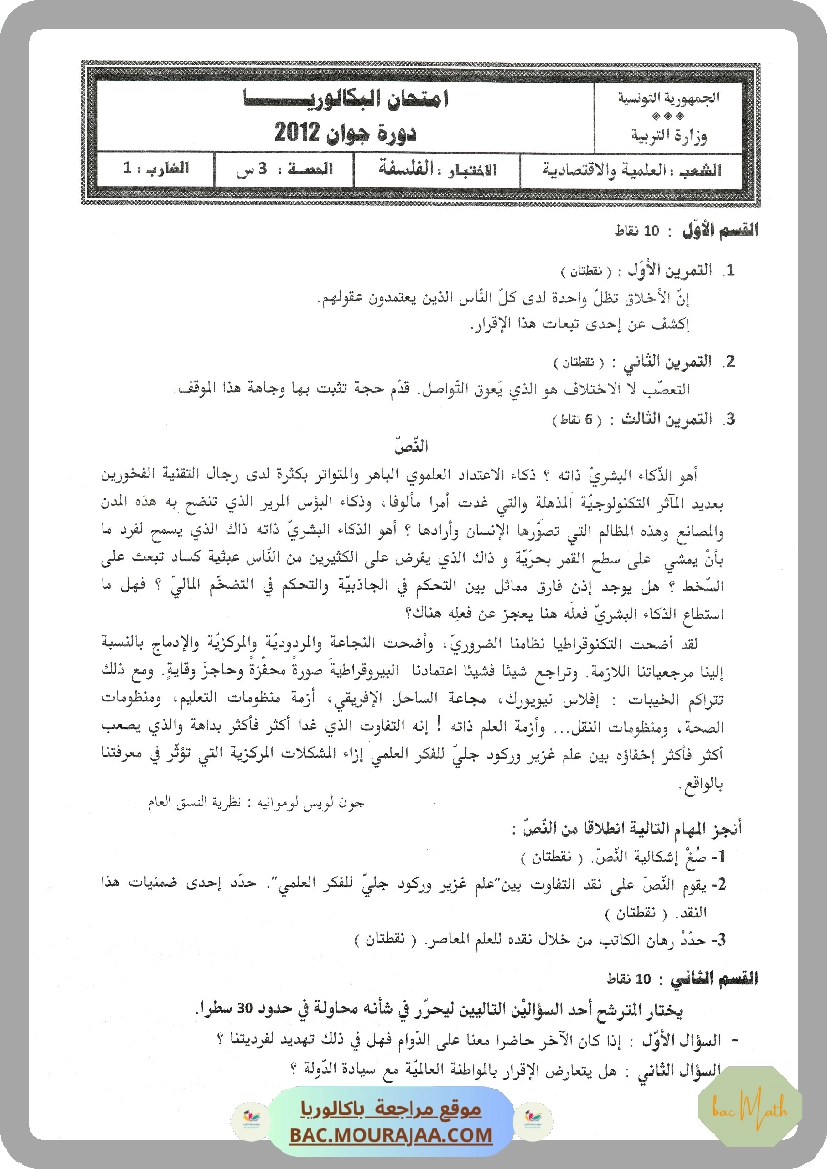 الجمهورية التونسية
وزارة التربية
امتحان البكالوريا
دورة جوان 2012
الشعب : العلمية والاقتصادية
الاختبار : الفلسفة
الحصة : 3 س
الضارب : 1
القسم الأوّل : 10 نقاط
1. التمرين الأوّل : ( نقطتان )
إنّ الأخلاق تظلّ واحدة لدى كلّ النّاس الذين يعتمدون عقولهم.
إكشف عن إحدى تبعات هذا الإقرار.
2. التمرين الثاني : ( نقطتان )
التعصّب لا الاختلاف هو الذي يَعوق التّواصل. قدّم حجة تثبت بها وجاهة هذا الموقف.
3. التمرين الثالث : ( 6 نقاط )
النّصّ
أهو الذّكاء البشريّ ذاته ؟ ذكاء الاعتداد العلموي الباهر والمتواتر بكثرة لدى رجال التقنية الفخورين
بعديد المآثر التكنولوجيّة المذهلة والتي غدت أمرا مألوفا، وذكاء البؤس المرير الذي تنضح به هذه المدن
والمصانع وهذه المظالم التي تصوّرها الإنسان وأرادها ؟ أهو الذكاء البشريّ ذاته ذاك الذي يسمح لفرد ما
بأنْ يمشي على سطح القمر بحرّيّة و ذاك الذي يفرض على الكثيرين من النّاس عبثية كساد تبعث على
السّخط ؟ هل يوجد إذن فارق مماثل بين التحكم في الجاذبيّة والتحكم في التضخّم الماليّ ؟ فهل ما
استطاع الذكاء البشريّ فعلَه هنا يعجز عن فعلِه هناك؟
لقد أضحت التكنوقراطيا نظامنا الضروريّ، وأضحت النّجاعة والمردوديّة والمركزيّة والإدماج بالنسبة
إلينا مرجعياتنا اللازمة. وتراجع شيئا فشيئا اعتمادنا البيروقراطيةَ صورةً محفّزةً وحاجزَ وقايةٍ. ومع ذلك
تتراكم الخيبات : إفلاس نيويورك، مجاعة الساحل الإفريقي، أزمة منظومات التعليم، ومنظومات
الصحة، ومنظومات النقل... وأزمة العلم ذاته ! إنه التفاوت الذي غدا أكثر فأكثر بداهة والذي يصعب
أكثر فأكثر إخفاؤه بين علم غزير وركود جليّ للفكر العلمي إزاء المشكلات المركزية التي تؤثّر في معرفتنا
بالواقع.
جون لويس لوموانيه : نظرية النسق العام
أنجز المهام التالية انطلاقا من النّصّ :
1- صُغْ إشكالية النّصّ. ( نقطتان )
2- يقوم النّصّ على نقد التفاوت بين"علم غزير وركود جليّ للفكر العلمي". حدّد إحدى ضمنيات هذا
النقد. ( نقطتان )
3- حدّدْ رهان الكاتب من خلال نقده للعلم المعاصر. ( نقطتان )
القسم الثاني : 10 نقاط
يختار المترشح أحد السؤاليْن التاليين ليحرّر في شأنه محاولة في حدود 30 سطرا.
- السؤال الأوّل : إذا كان الآخر حاضرا معنا على الدّوام فهل في ذلك تهديد لفرديتنا ؟
- السؤال الثاني : هل يتعارض الإقرار بالمواطنة العالميّة مع سيادة الدّولة ؟
موقع مراجعة باكالوريا
BAC.MOURAJAA.COM
bac Math